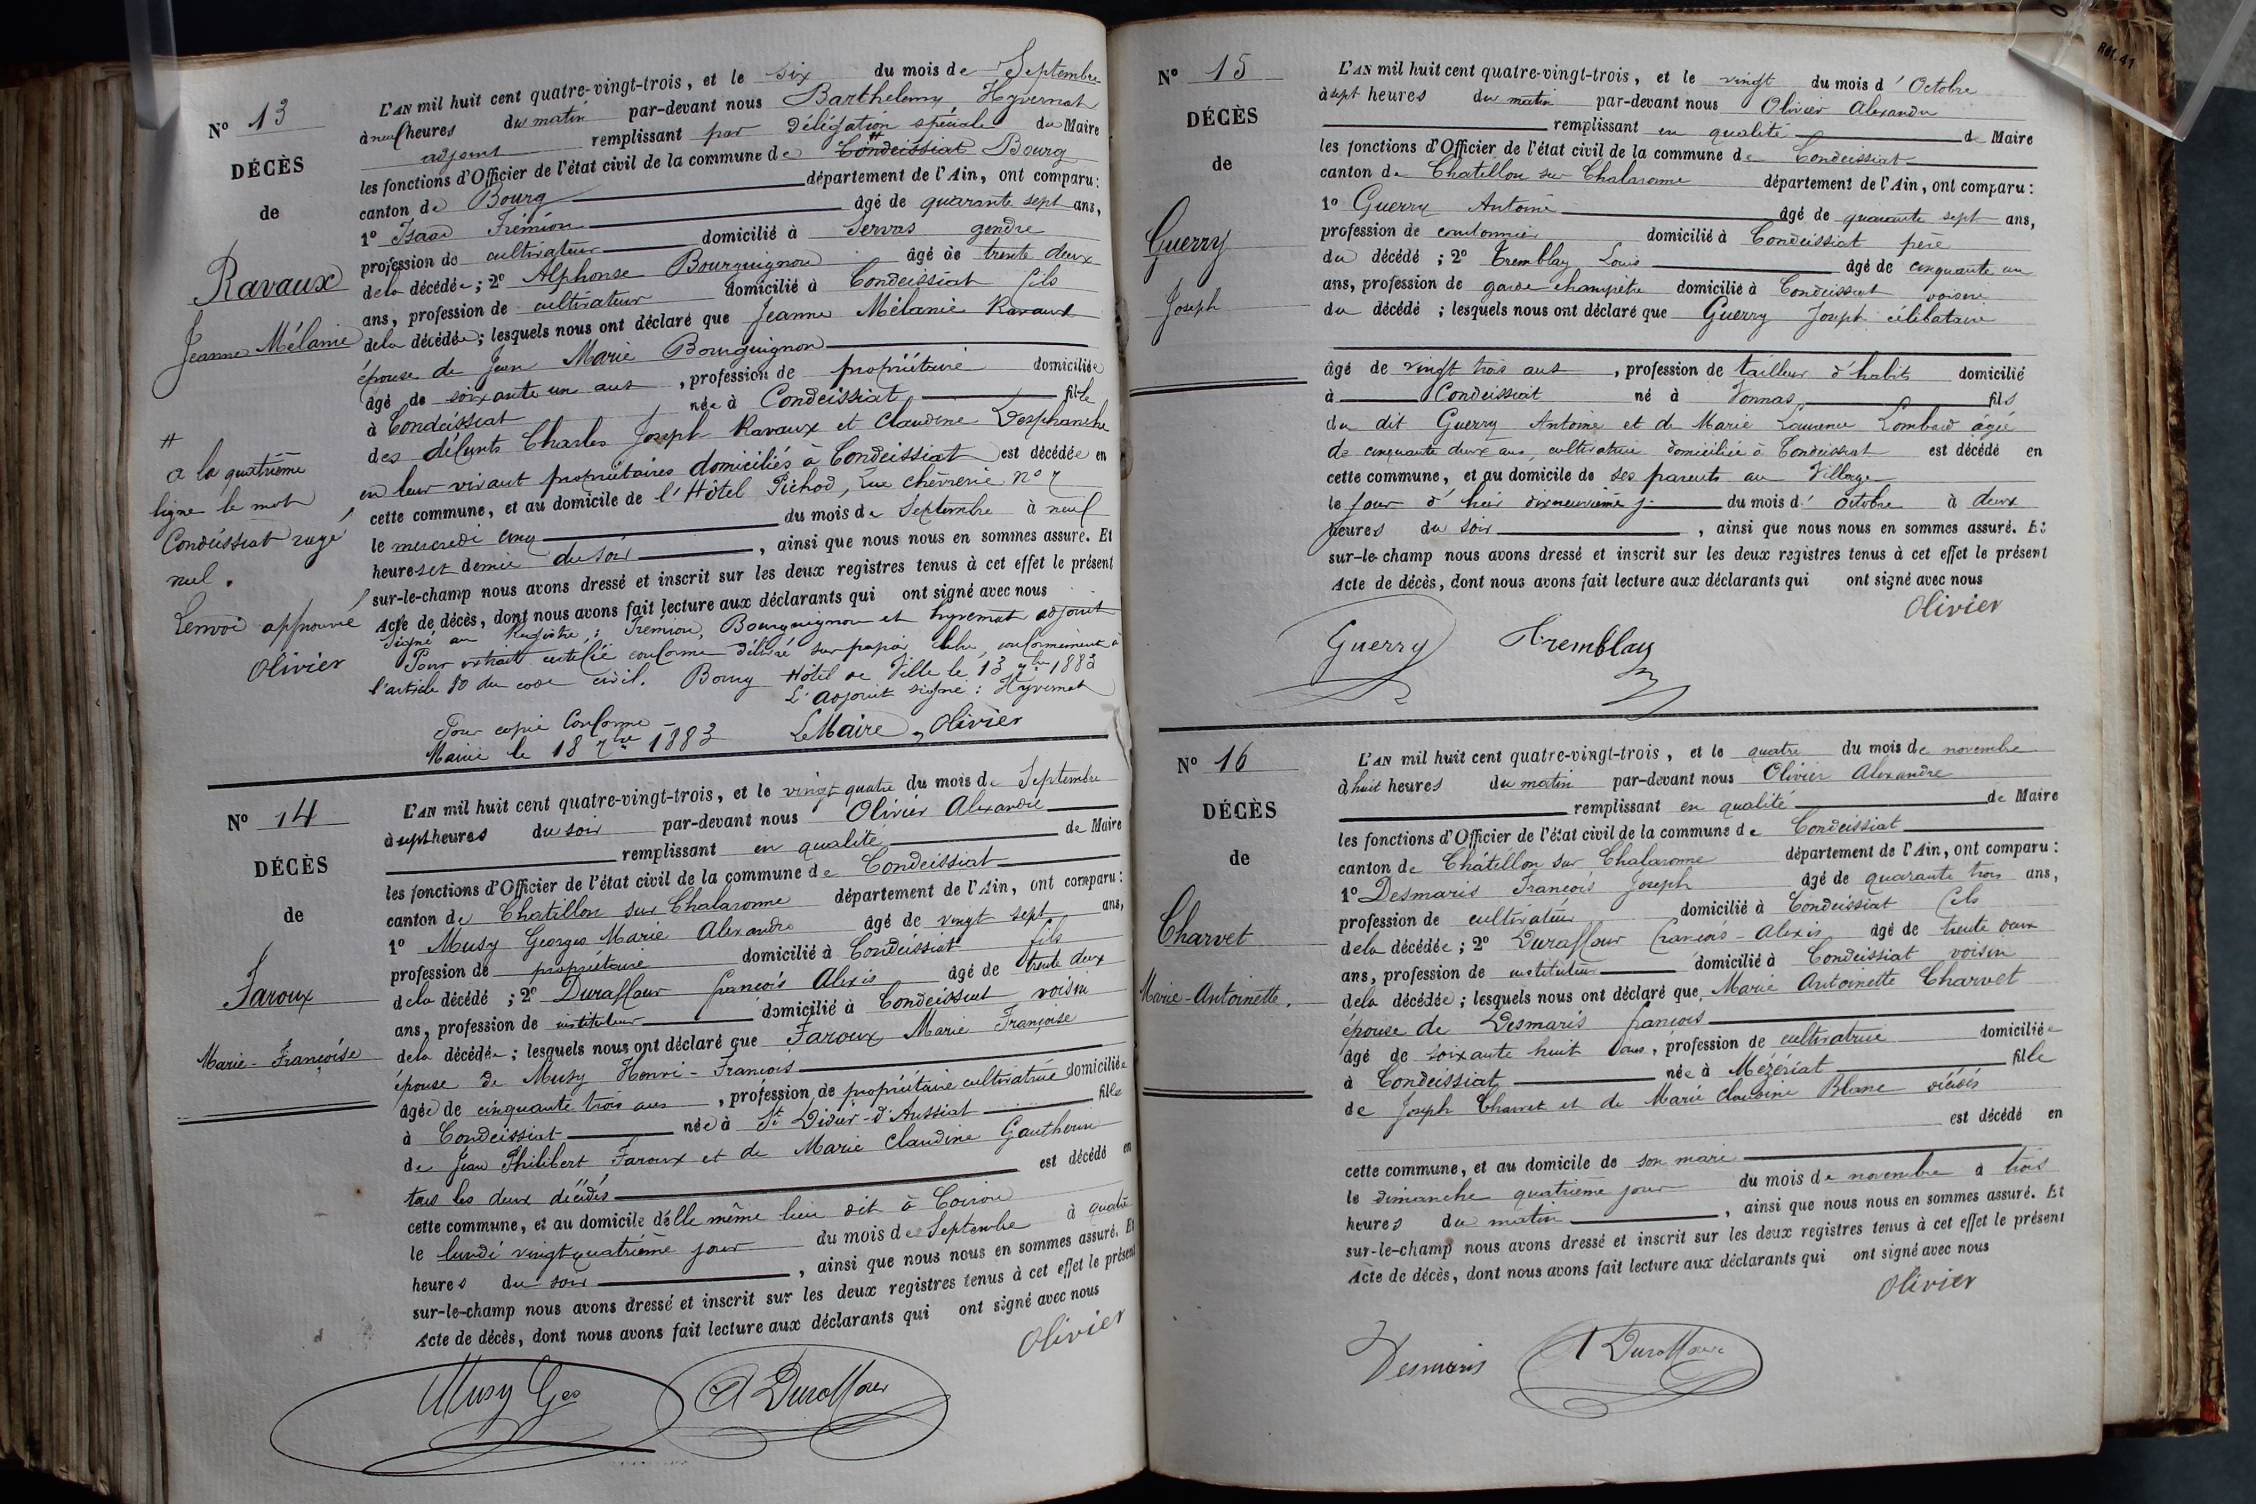 N° 13
DÉCÈS
de
Ravaux
Jeanne Mélanie
#
a la quatrième
ligne le mot
Condeissiat rayé
nul.
Renvoi approuvé
Olivier
L'AN mil huit cent quatre-vingt-trois, et le six du mois de Septembre
à neuf heures du matin par-devant nous Barthelemy Hyvernat
adjoint remplissant par délégation spéciale du Maire
les fonctions d'Officier de l'état civil de la commune de Condeissiat # Bourg
canton de Bourg département de l'Ain, ont comparu:
1° Isaac Frémion âgé de quarante sept ans,
profession de cultivateur domicilié à Servas gendre
de la décédée; 2° Alphonse Bourguignon âgé de trente deux
ans, profession de cultivateur domicilié à Condeissiat fils
de la décédée; lesquels nous ont déclaré que Jeanne Mélanie Ravaux
épouse de Jean Marie Bourguignon
âgé de soixante un ans, profession de propriétaire domiciliée
à Condeissiat née à Condeissiat fille
des défunts Charles Joseph Ravaux et Claudine Desphanche
en leur vivant propriétaires domiciliés à Condeissiat est décédée en
cette commune, et au domicile de l'Hôtel Pichod, rue chèvrerie n° 7
le mercredi cinq du mois de Septembre à neuf
heures et demie du soir, ainsi que nous nous en sommes assuré. Et
sur-le-champ nous avons dressé et inscrit sur les deux registres tenus à cet effet le présent
Acte de décès, dont nous avons fait lecture aux déclarants qui ont signé avec nous
Signé au Registre: Frémion, Bourguignon et Hyvernat adjoint
Pour extrait certifié conforme délivré sur papier libre, conformément à
l'article 80 du code civil. Bourg Hôtel de Ville le 13 7bre 1883
L'adjoint signé: Hyvernat
Pour copie Conforme
Mairie le 18 7bre 1883 Le Maire, Olivier
N° 14
DÉCÈS
de
Faroux
Marie-Françoise
L'AN mil huit cent quatre-vingt-trois, et le vingt quatre du mois de Septembre
à sept heures du soir par-devant nous Olivier Alexandre
remplissant en qualité de Maire
les fonctions d'Officier de l'état civil de la commune de Condeissiat
canton de Chatillon sur Chalaronne département de l'Ain, ont comparu:
1° Musy Georges Marie Alexandre âgé de vingt sept ans,
profession de propriétaire domicilié à Condeissiat fils
de la décédé; 2° Duraffour françois Alexis âgé de trente deux
ans, profession de instituteur domicilié à Condeissiat voisin
de la décédée; lesquels nous ont déclaré que Faroux Marie Françoise
épouse de Musy Henri-François
âgée de cinquante trois ans, profession de propriétaire cultivatrice domiciliée
à Condeissiat née à St Didier-d'Aussiat fille
de Jean Philibert Faroux et de Marie Claudine Gautheron
tous les deux décédés est décédé en
cette commune, et au domicile d'elle même lieu dit à Coirou
le lundi vingt quatrième jour du mois de Septembre à quatre
heures du soir, ainsi que nous nous en sommes assuré. Et
sur-le-champ nous avons dressé et inscrit sur les deux registres tenus à cet effet le présent
Acte de décès, dont nous avons fait lecture aux déclarants qui ont signé avec nous
Olivier
Musy Ges A Duraffour
N° 15
DÉCÈS
de
Guerry
Joseph
L'AN mil huit cent quatre-vingt-trois, et le vingt du mois d'Octobre
à sept heures du matin par-devant nous Olivier Alexandre
remplissant en qualité de Maire
les fonctions d'Officier de l'état civil de la commune de Condeissiat
canton de Chatillon sur Chalaronne département de l'Ain, ont comparu:
1° Guerry Antoine âgé de quarante sept ans,
profession de cantonnier domicilié à Condeissiat père
du décédé; 2° Tremblay Louis âgé de cinquante un
ans, profession de garde champêtre domicilié à Condeissiat voisin
du décédé; lesquels nous ont déclaré que Guerry Joseph célibataire
âgé de vingt trois ans, profession de tailleur d'habits domicilié
à Condeissiat né à Vonnas fils
du dit Guerry Antoine et de Marie Laurence Lombard âgée
de cinquante deux ans, cultivatrice domiciliée à Condeissiat est décédé en
cette commune, et au domicile de ses parents au Village
le jour d'hier dixneuvième j. du mois d'octobre à deux
heures du soir, ainsi que nous nous en sommes assuré. Et
sur-le-champ nous avons dressé et inscrit sur les deux registres tenus à cet effet le présent
Acte de décès, dont nous avons fait lecture aux déclarants qui ont signé avec nous
Olivier
Guerry Tremblay
N° 16
DÉCÈS
de
Charvet
Marie-Antoinette.
L'AN mil huit cent quatre-vingt-trois, et le quatre du mois de novembre
à huit heures du matin par-devant nous Olivier Alexandre
remplissant en qualité de Maire
les fonctions d'Officier de l'état civil de la commune de Condeissiat
canton de Châtillon sur Chalaronne département de l'Ain, ont comparu:
1° Desmaris François Joseph âgé de quarante trois ans,
profession de cultivateur domicilié à Condeissiat fils
de la décédée; 2° Duraffour françois-Alexis âgé de trente deux
ans, profession de instituteur domicilié à Condeissiat voisin
de la décédée; lesquels nous ont déclaré que Marie Antoinette Charvet
épouse de Desmaris françois
âgé de soixante huit ans, profession de cultivatrice domiciliée
à Condeissiat née à Mézériat fille
de Joseph Charvet et de Marie claudine Blanc décédés
est décédé en
cette commune, et au domicile de son mari
le dimanche quatrième jour du mois de novembre à trois
heures du matin, ainsi que nous nous en sommes assuré. Et
sur-le-champ nous avons dressé et inscrit sur les deux registres tenus à cet effet le présent
Acte de décès, dont nous avons fait lecture aux déclarants qui ont signé avec nous
Olivier
Desmaris A Duraffour